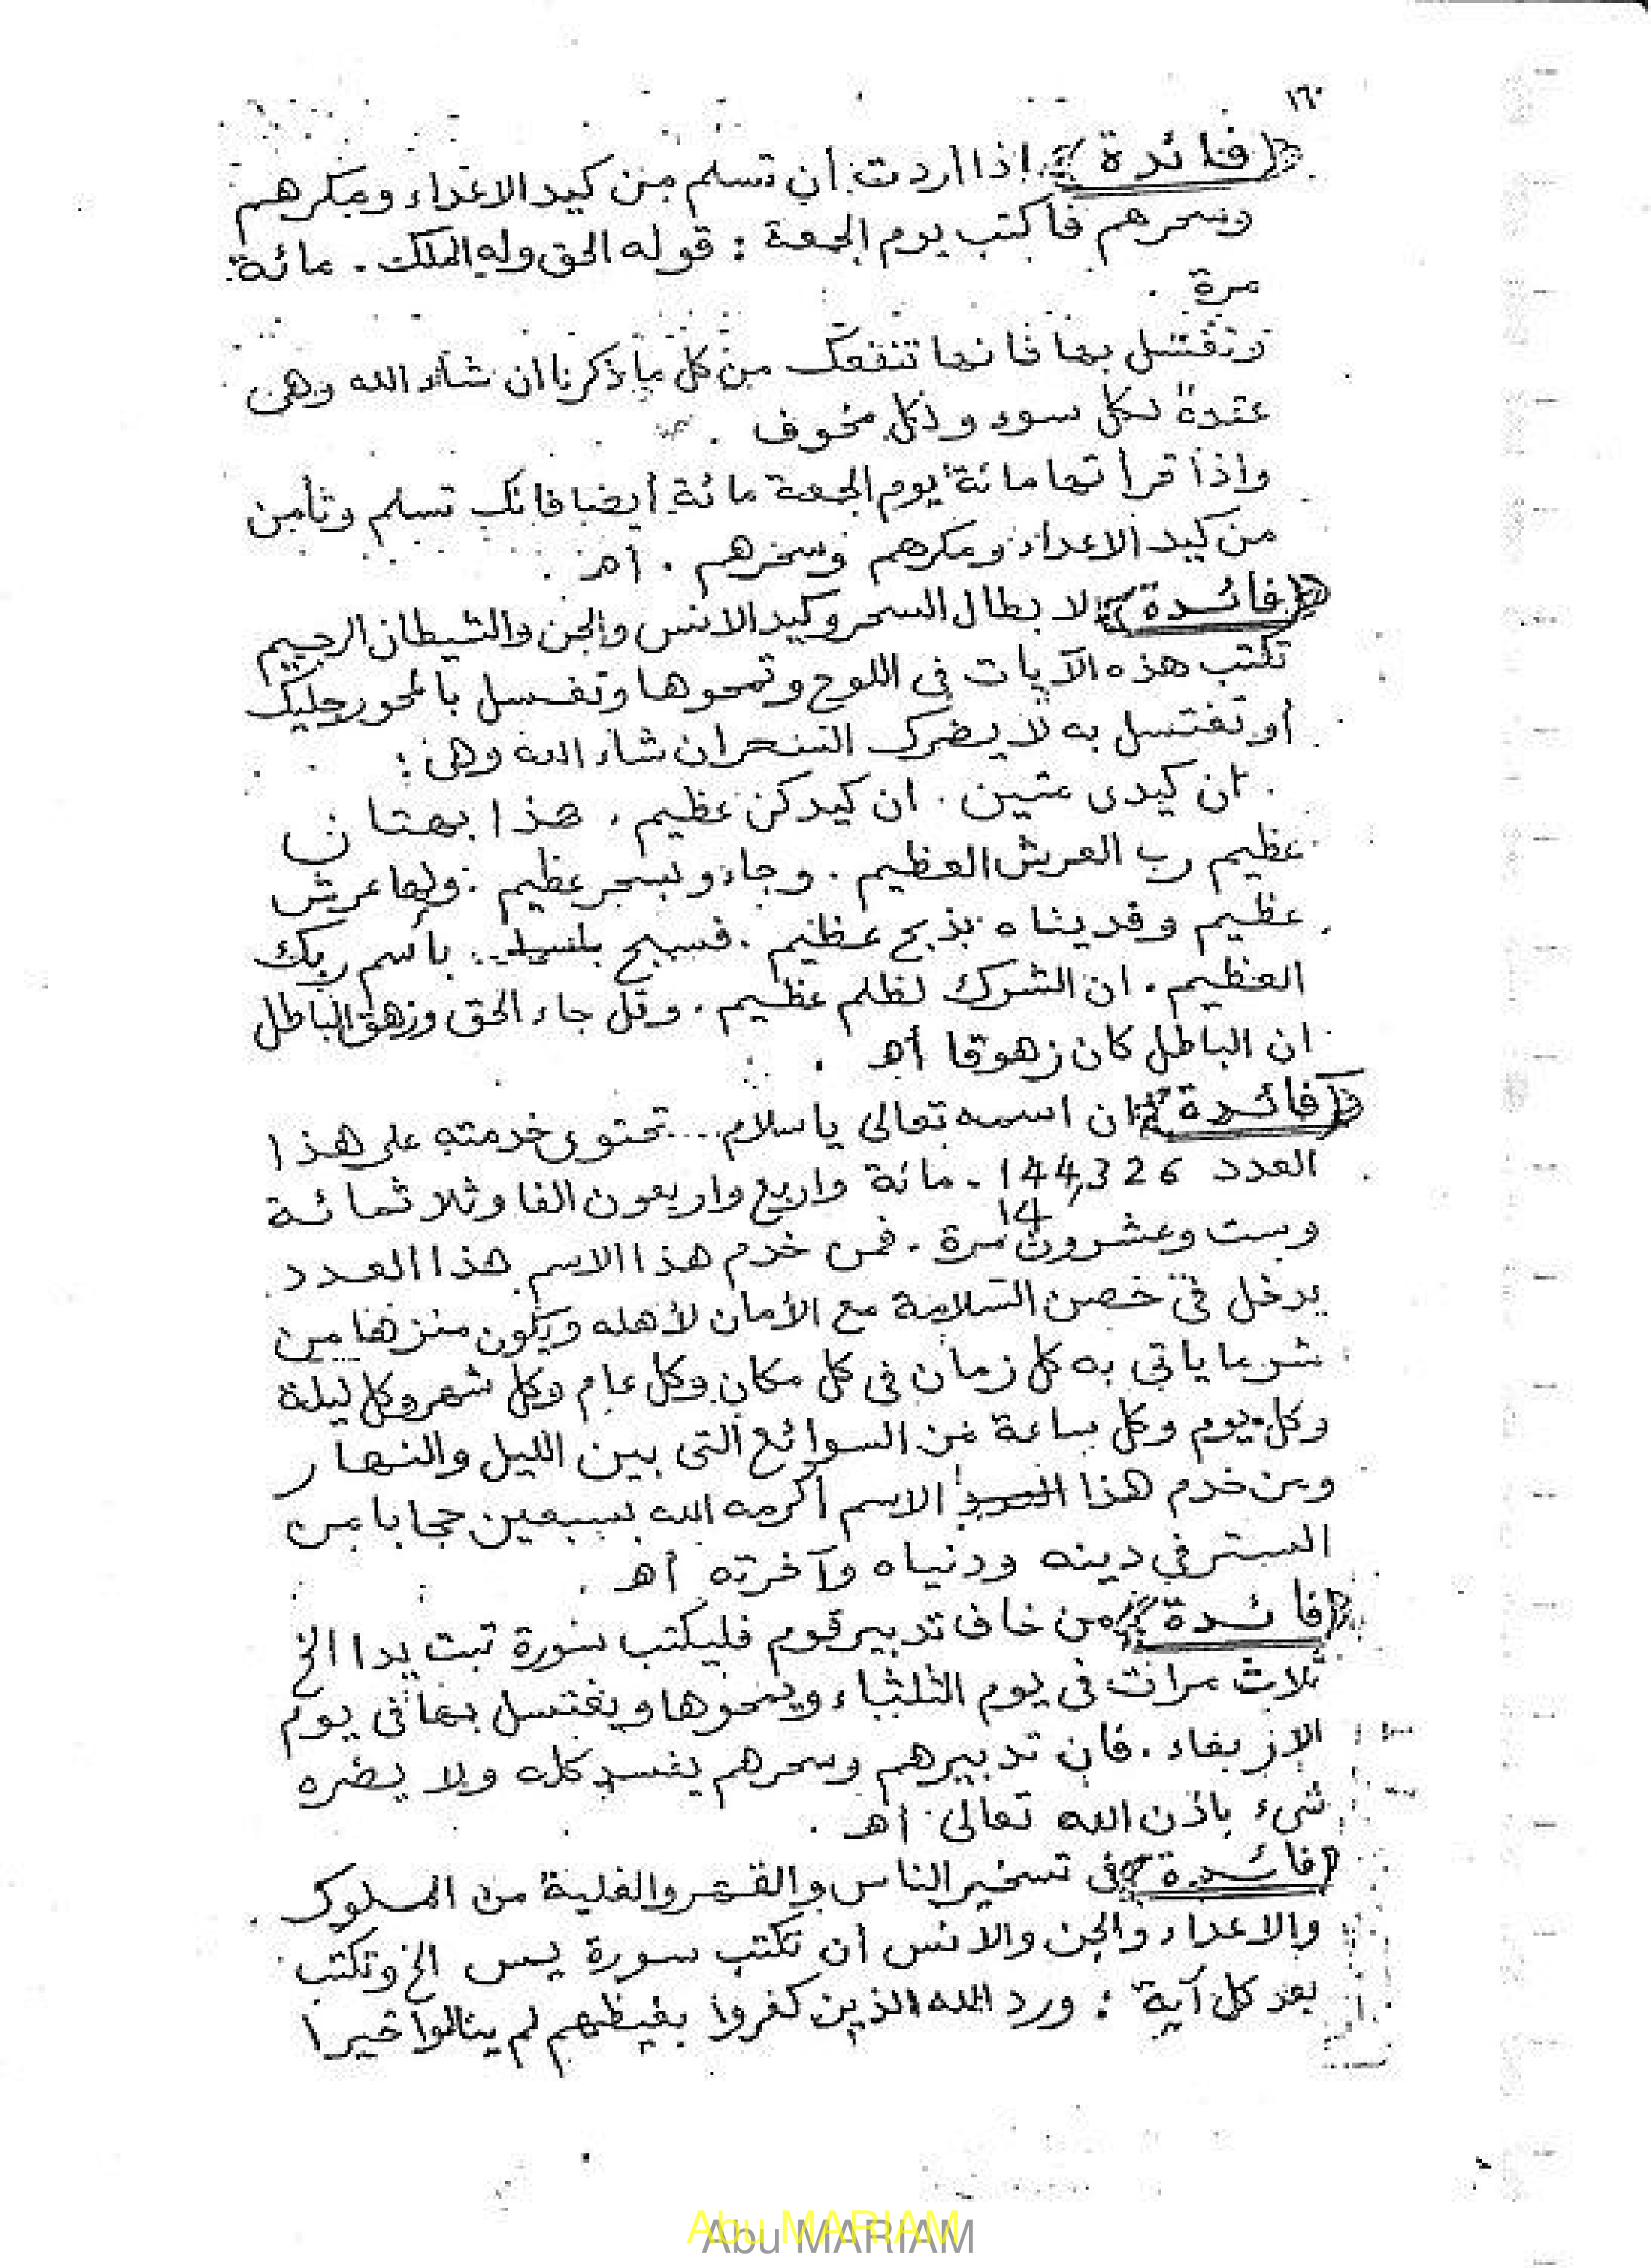 ١٦٠
﴿فائدة﴾ اذا اردت أن تسلم من كيد الاعداء ومكرهم
وسحرهم فاكتب يوم الجمعة : قوله الحق وله الملك . مائة
مرة .
وتغتسل بها فانها تنفعك من كل ما ذكرنا ان شاء الله وهى
عقدة لكل سوء وكل مخوف .
واذا قرأتها مائة يوم الجمعة مائة أيضا فانك تسلم وتأمن
من كيد الاعداء ومكرهم وسحرهم . أهـ .
﴿فائدة﴾ لا بطال السحر وكيد الانس والجن والشيطان الرجيم
تكتب هذه الآيات فى اللوح وتمحوها وتغسل بالمحو رجليك
أو تغتسل به لا يضرك السحر ان شاء الله وهى :
ان كيدى متين . ان كيدكن عظيم . هذا بهتان
عظيم رب العرش العظيم . وجاؤ بسحر عظيم . ولها عرش
عظيم وفديناه بذبح عظيم . فسبح باسم ربك
العظيم . ان الشرك لظلم عظيم . وقل جاء الحق وزهق الباطل
ان الباطل كان زهوقا أهـ .
﴿فائدة﴾ ان اسمه تعالى يا سلام... تحتوى خدمته على هذا
العدد 144,326 . مائة واربع واربعون الفا وثلاثمائة
14
وست وعشرون مرة . فمن خدم هذا الاسم هذا العدد
يدخل فى حصن السلامة مع الأمان لأهله ويكون منزها من
شر ما ياتى به كل زمان فى كل مكان وكل عام وكل شهر وكل ليلة
وكل يوم وكل ساعة من السوائع التى بين الليل والنهار
ومن خدم هذا العدد الاسم أكرمه الله بسبعين حجابا من
الستر فى دينه ودنياه وآخرته أهـ .
﴿فائدة﴾ من خاف تدبير قوم فليكتب سورة تبت يدا الخ
ثلاث مرات فى يوم الثلثاء ويمحوها ويغتسل بها فى يوم
الاربعاء . فان تدبيرهم وسحرهم يفسد كله ولا يضره
شىء باذن الله تعالى أهـ .
﴿فائدة﴾ فى تسخير الناس والقهر والغلبة من الملوك
والاعداء والجن والانس أن تكتب سورة يس الخ وتكتب
بعد كل آية : ورد الله الذين كفروا بغيظهم لم ينالوا خيرا
Abu MARIAM